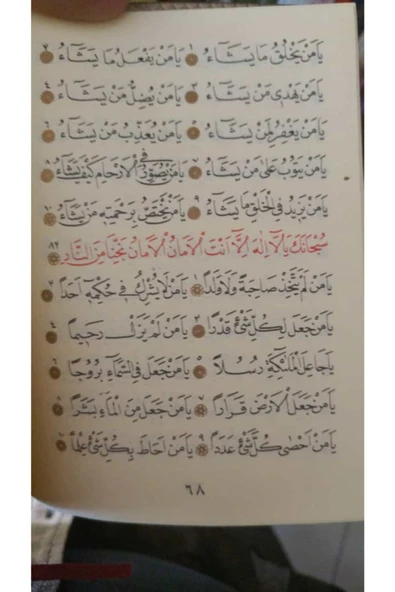 يَا مَنْ يَخْلُقُ مَا يَشَٓاءُ ١ يَا مَنْ يَفْعَلُ مَا يَشَٓاءُ ٢
يَا مَنْ يَهْدِي مَنْ يَشَٓاءُ ٣ يَا مَنْ يُضِلُّ مَنْ يَشَٓاءُ ٤
يَا مَنْ يَغْفِرُ لِمَنْ يَشَٓاءُ ٥ يَا مَنْ يُعَذِّبُ مَنْ يَشَٓاءُ ٦
يَا مَنْ يَتُوبُ عَلٰى مَنْ يَشَٓاءُ ٧ يَا مَنْ يُصَوِّرُ فِي الْاَرْحَامِ كَيْفَ يَشَٓاءُ ٨
يَا مَنْ يَزِيدُ فِي الْخَلْقِ مَا يَشَٓاءُ ٩ يَا مَنْ يَخْتَصُّ بِرَحْمَتِهِ مَنْ يَشَٓاءُ ١٠
سُبْحَانَكَ يَا لَٓا اِلٰهَ اِلَّٓا اَنْتَ الْاَمَانُ الْاَمَانُ نَجِّنَا مِنَ النَّارِ ٨٢
يَا مَنْ لَمْ يَتَّخِذْ صَاحِبَةً وَلَا وَلَدًا ١ يَا مَنْ لَا يُشْرِكُ فِي حُكْمِهِ اَحَدًا ٢
يَا مَنْ جَعَلَ لِكُلِّ شَيْءٍ قَدْرًا ٣ يَا مَنْ لَمْ يَزَلْ رَحِيمًا ٤
يَا جَاعِلَ الْمَلٰٓئِكَةِ رُسُلًا ٥ يَا مَنْ جَعَلَ فِي السَّمَٓاءِ بُرُوجًا ٦
يَا مَنْ جَعَلَ الْاَرْضَ قَرَارًا ٧ يَا مَنْ جَعَلَ مِنَ الْمَٓاءِ بَشَرًا ٨
يَا مَنْ اَحْصٰى كُلَّ شَيْءٍ عَدَدًا ٩ يَا مَنْ اَحَاطَ بِكُلِّ شَيْءٍ عِلْمًا ١٠
٦٨